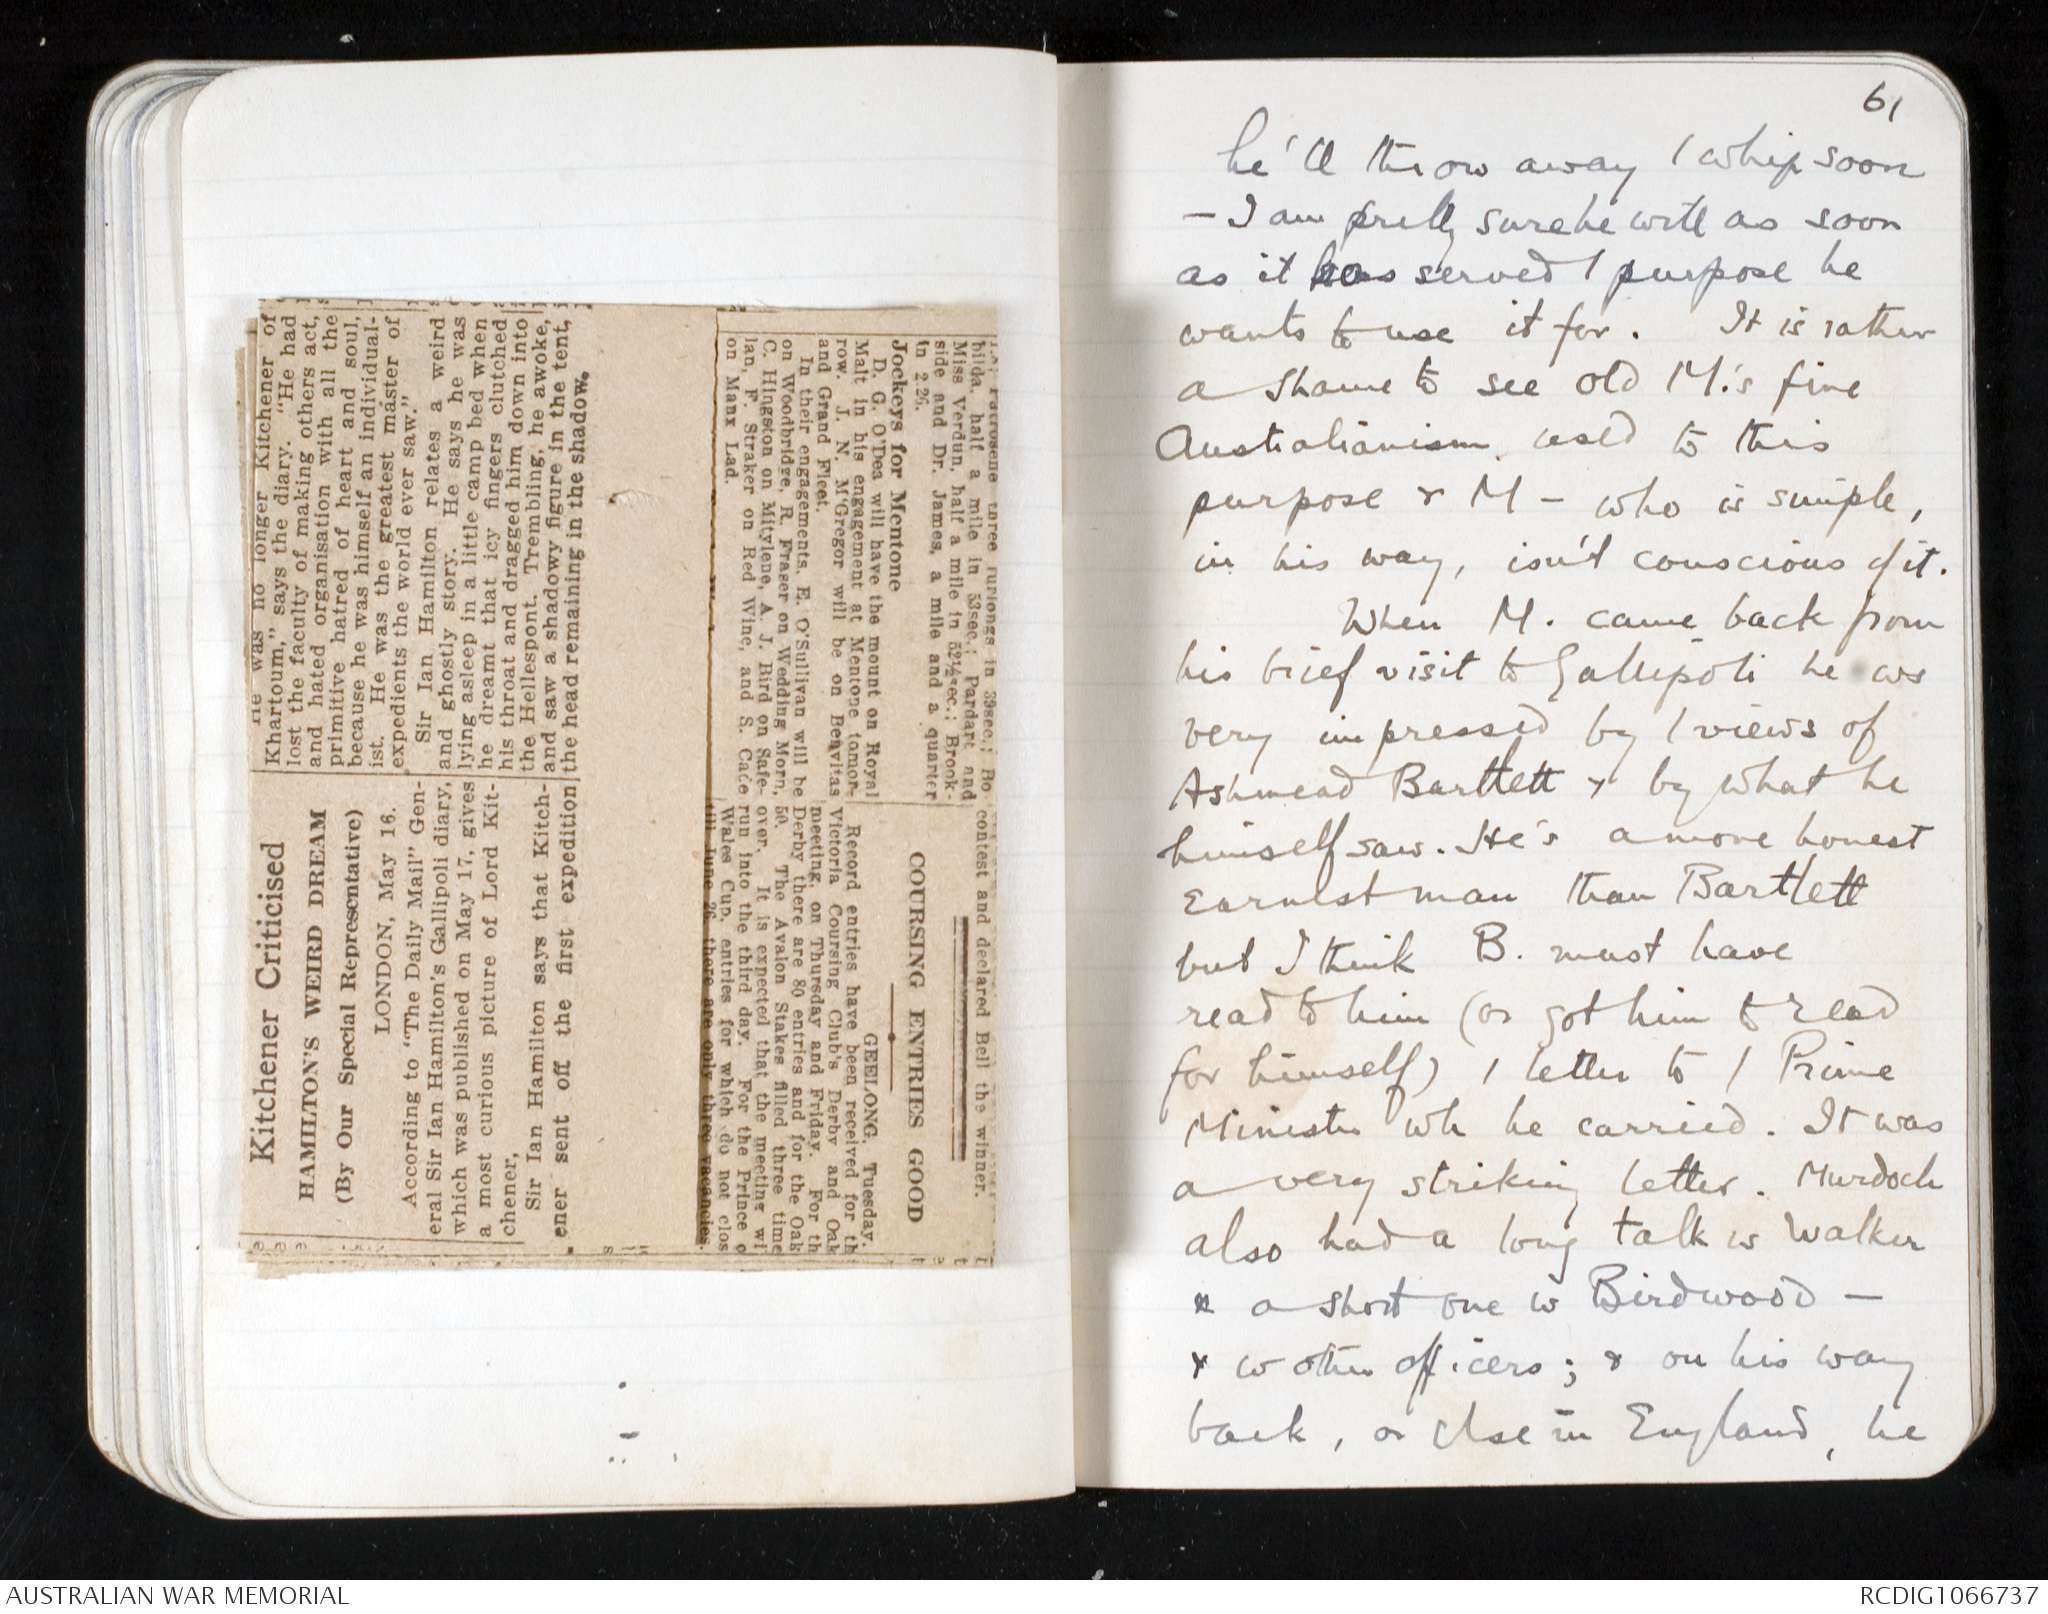 Kitchener Criticised
HAMILTON'S WEIRD DREAM
(By Our Special Representative)
LONDON, May 16.
According to "The Daily Mail" Gen-
eral Sir Ian Hamilton's Gallipoli diary,
which was published on May 17, gives
a most curious picture of Lord Kit-
chener,
Sir Ian Hamilton says that Kitch-
ener sent off the first expedition
He was no longer Kitchener of
Khartoum," says the diary. "He had
lost the faculty of making others act,
and hated organisation with all the
primitive hatred of heart and soul,
because he was himself an individual-
ist. He was the greatest master of
expedients the world ever saw."
Sir Ian Hamilton relates a weird
and ghostly story. He says he was
lying asleep in a little camp bed when
he dreamt that icy fingers clutched
his throat and dragged him down into
the Hellespont. Trembling, he awoke,
and saw a shadowy figure in the tent,
the head remaining in the shadow.
three furlongs in 39sec.; Bo
hilda, half a mile in 53sec.; Pardart and
Miss Verdun, half a mile in 52½sec.; Brook-
side and Dr. James, a mile and a quarter
in 2.26.
Jockeys for Mentone
D. G. O'Dea will have the mount on Royal
Malt in his engagement at Mentone tomor-
row. J. N. M'Gregor will be on Benvitas
and Grand Fleet.
In their engagements, E. O'Sullivan will be
on Woodbridge, R. Fraser on Wedding Morn,
C. Hingston on Mitylene, A. J. Bird on Safe-
lan, F. Straker on Red Wine, and S. Cade
on Manx Lad.
contest and declared Bell the winner.
COURSING ENTRIES GOOD
GEELONG, Tuesday.
Record entries have been received for th
Victoria Coursing Club's Derby and Oak
meeting, on Thursday and Friday. For th
Derby there are 80 entries and for the Oak
50. The Avalon Stakes filled three time
over. It is expected that the meeting wi
run into the third day. For the Prince o
Wales Cup, entries for which do not clos
till June 26, there are only three vacancies.
61
he'll throw away / whip soon
- I am pretty sure he will as soon
as it has served / purpose he
wants to use it for. It is rather
a shame to see old M.'s fine
Australianism used to this
purpose & M - who is simple,
in his way, isn't conscious of it.
When M. came back from
his brief visit to Gallipoli he ws
very impressed by / views of
Ashmead Bartlett & by what he
himself saw. He's a more honest
earnest man than Bartlett
but I think B. must have
read to him (or got him to read
for himself) / letter to / Prime
Minister wh he carried. It was
a very striking letter. Murdoch
also had a long talk w Walker
& a short one w Birdwood -
& w other officers; & on his way
back, or else in England, he
AUSTRALIAN WAR MEMORIAL
RCDIG1066737